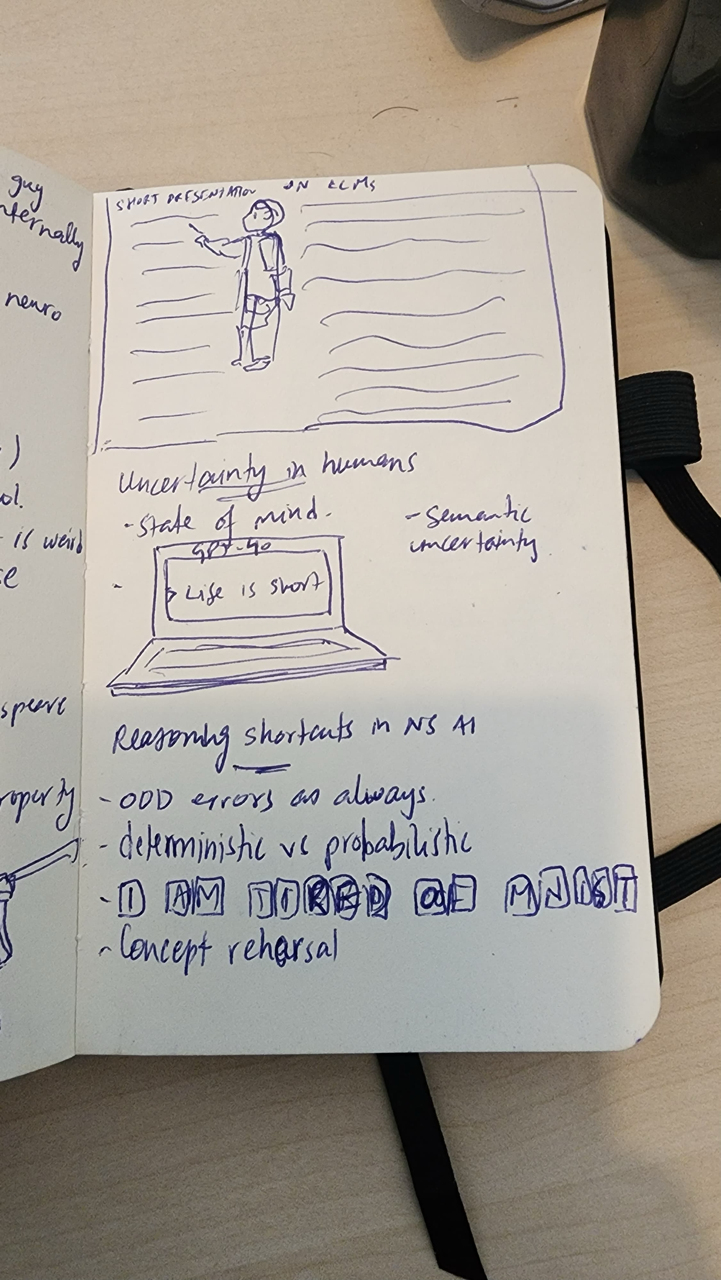 guy
nternally
neuro
)
ol.
is weird
se
speare
roperty
SHORT PRESENTATION ON LLMS
Uncertainty in humans
- State of mind.
- Semantic
uncertainty
GPT-4o
> Life is short
Reasoning shortcuts in NS AI
- OOD errors as always.
- deterministic vs probabilistic
- I AM TIRED OF MNIST
- Concept rehearsal